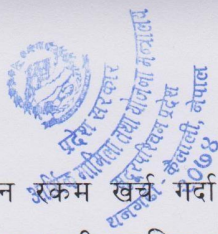 प्रदेश सरकार
आर्थिक मामिला तथा योजना मन्त्रालय
सुदूरपश्चिम प्रदेश
धनगढी, कैलाली, नेपाल
२०७४
न रकम खर्च गर्दा